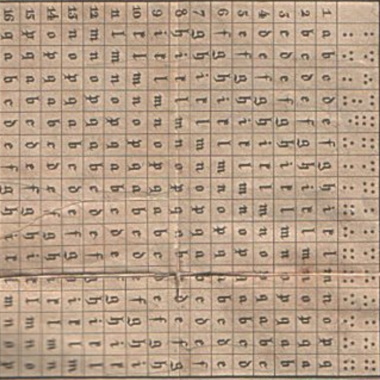 1 a b c d e f g h i k l m n o p q
2 b c d e f g h i k l m n o p q a
3 c d e f g h i k l m n o p q a b
4 d e f g h i k l m n o p q a b c
5 e f g h i k l m n o p q a b c d
6 f g h i k l m n o p q a b c d e
7 g h i k l m n o p q a b c d e f
8 h i k l m n o p q a b c d e f g
9 i k l m n o p q a b c d e f g h
10 k l m n o p q a b c d e f g h i
11 l m n o p q a b c d e f g h i k
12 m n o p q a b c d e f g h i k l
13 n o p q a b c d e f g h i k l m
14 o p q a b c d e f g h i k l m n
15 p q a b c d e f g h i k l m n o
16 q a b c d e f g h i k l m n o p